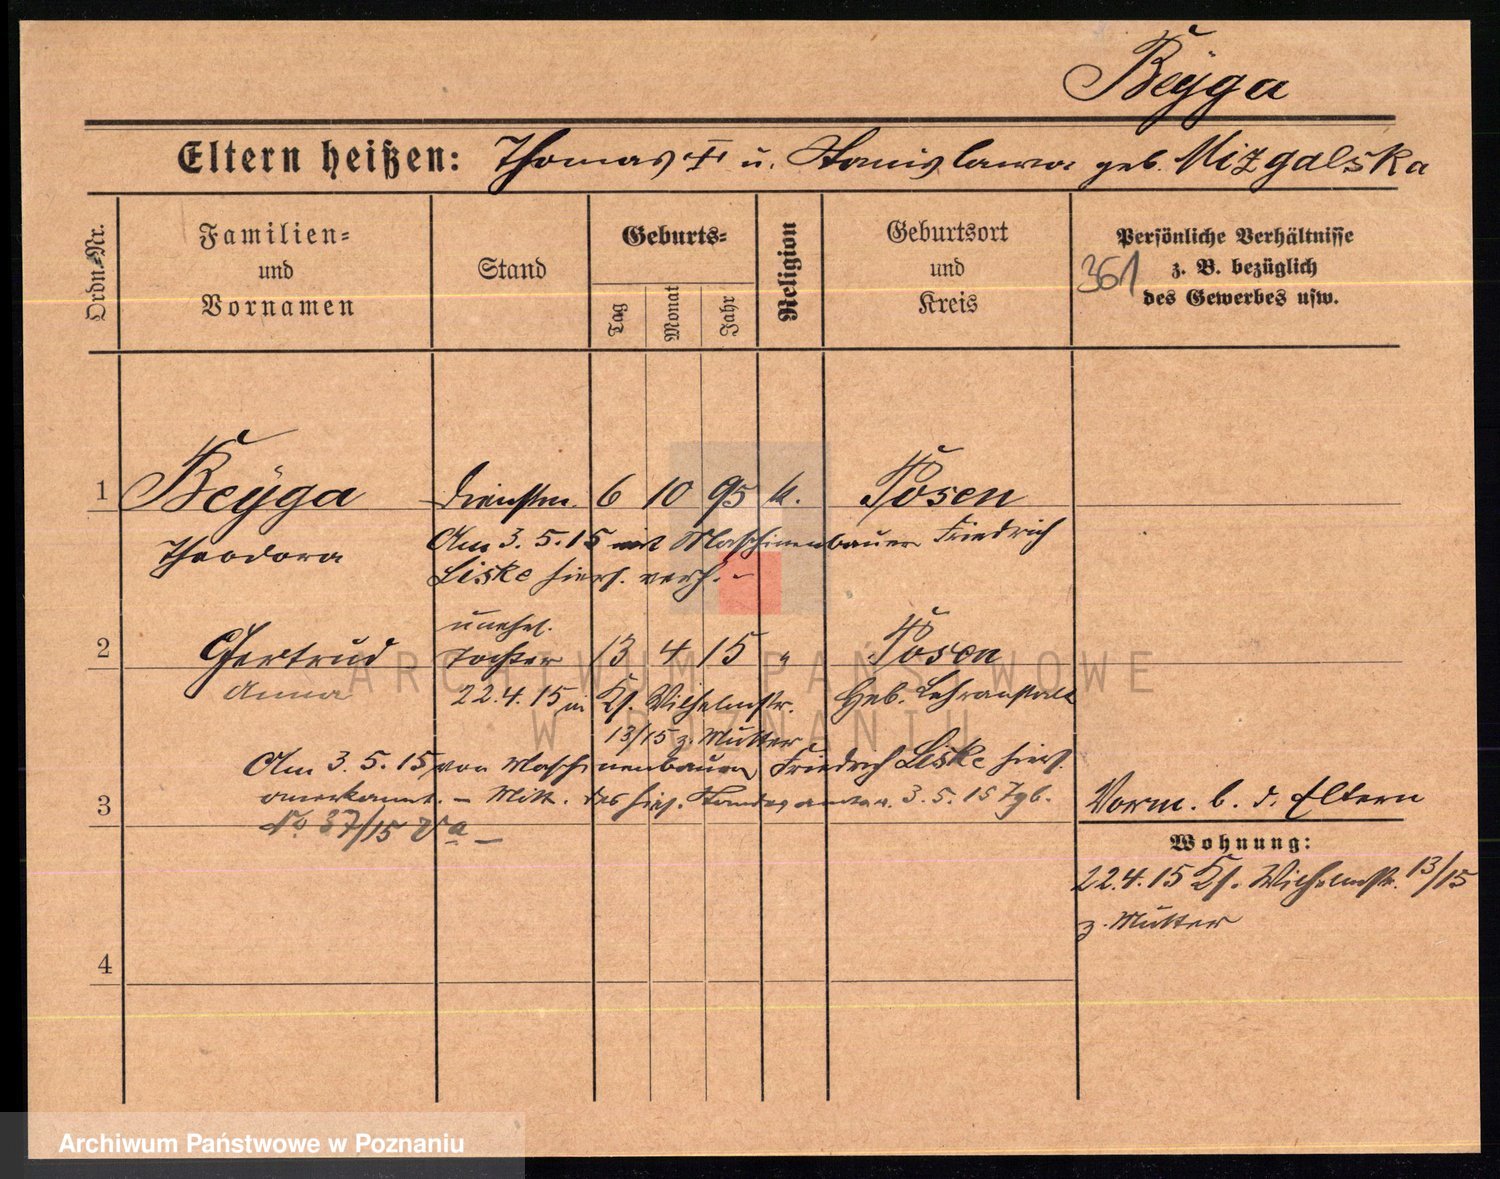 Beÿga
Eltern heißen: Thomas † u. Stanislawa geb. Mizgalska
Ordn-Nr.
Familien- und Vornamen
Stand
Geburts-
Tag
Monat
Jahr
Religion
Geburtsort und Kreis
361
Persönliche Verhältnisse
z. B. bezüglich
des Gewerbes usw.
1 Beÿga Dienstm. 6 10 95 k. Posen
Theodora
Am 3.5.15 mit Maschinenbauer Friedrich
Liske hiers. verh. -
unehel.
2 Gertrud Tochter 13 4 15 " Posen
Anna
22.4.15 in Kl. Wilhelmstr. Heb. Lehranstalt
13/15 z. Mutter
Am 3.5.15 von Maschinenbauer Friedrich Liske hiers.
3 anerkannt. - Mitt. des hies. Standesamts v. 3.5.15 Tgb.
No 37/15 Va -
Vorm. b. d. Eltern
Wohnung:
22.4.15 Kl. Wilhelmstr. 13/15
z. Mutter
4
ARCHIWUM PAŃSTWOWE
W POZNANIU
Archiwum Państwowe w Poznaniu